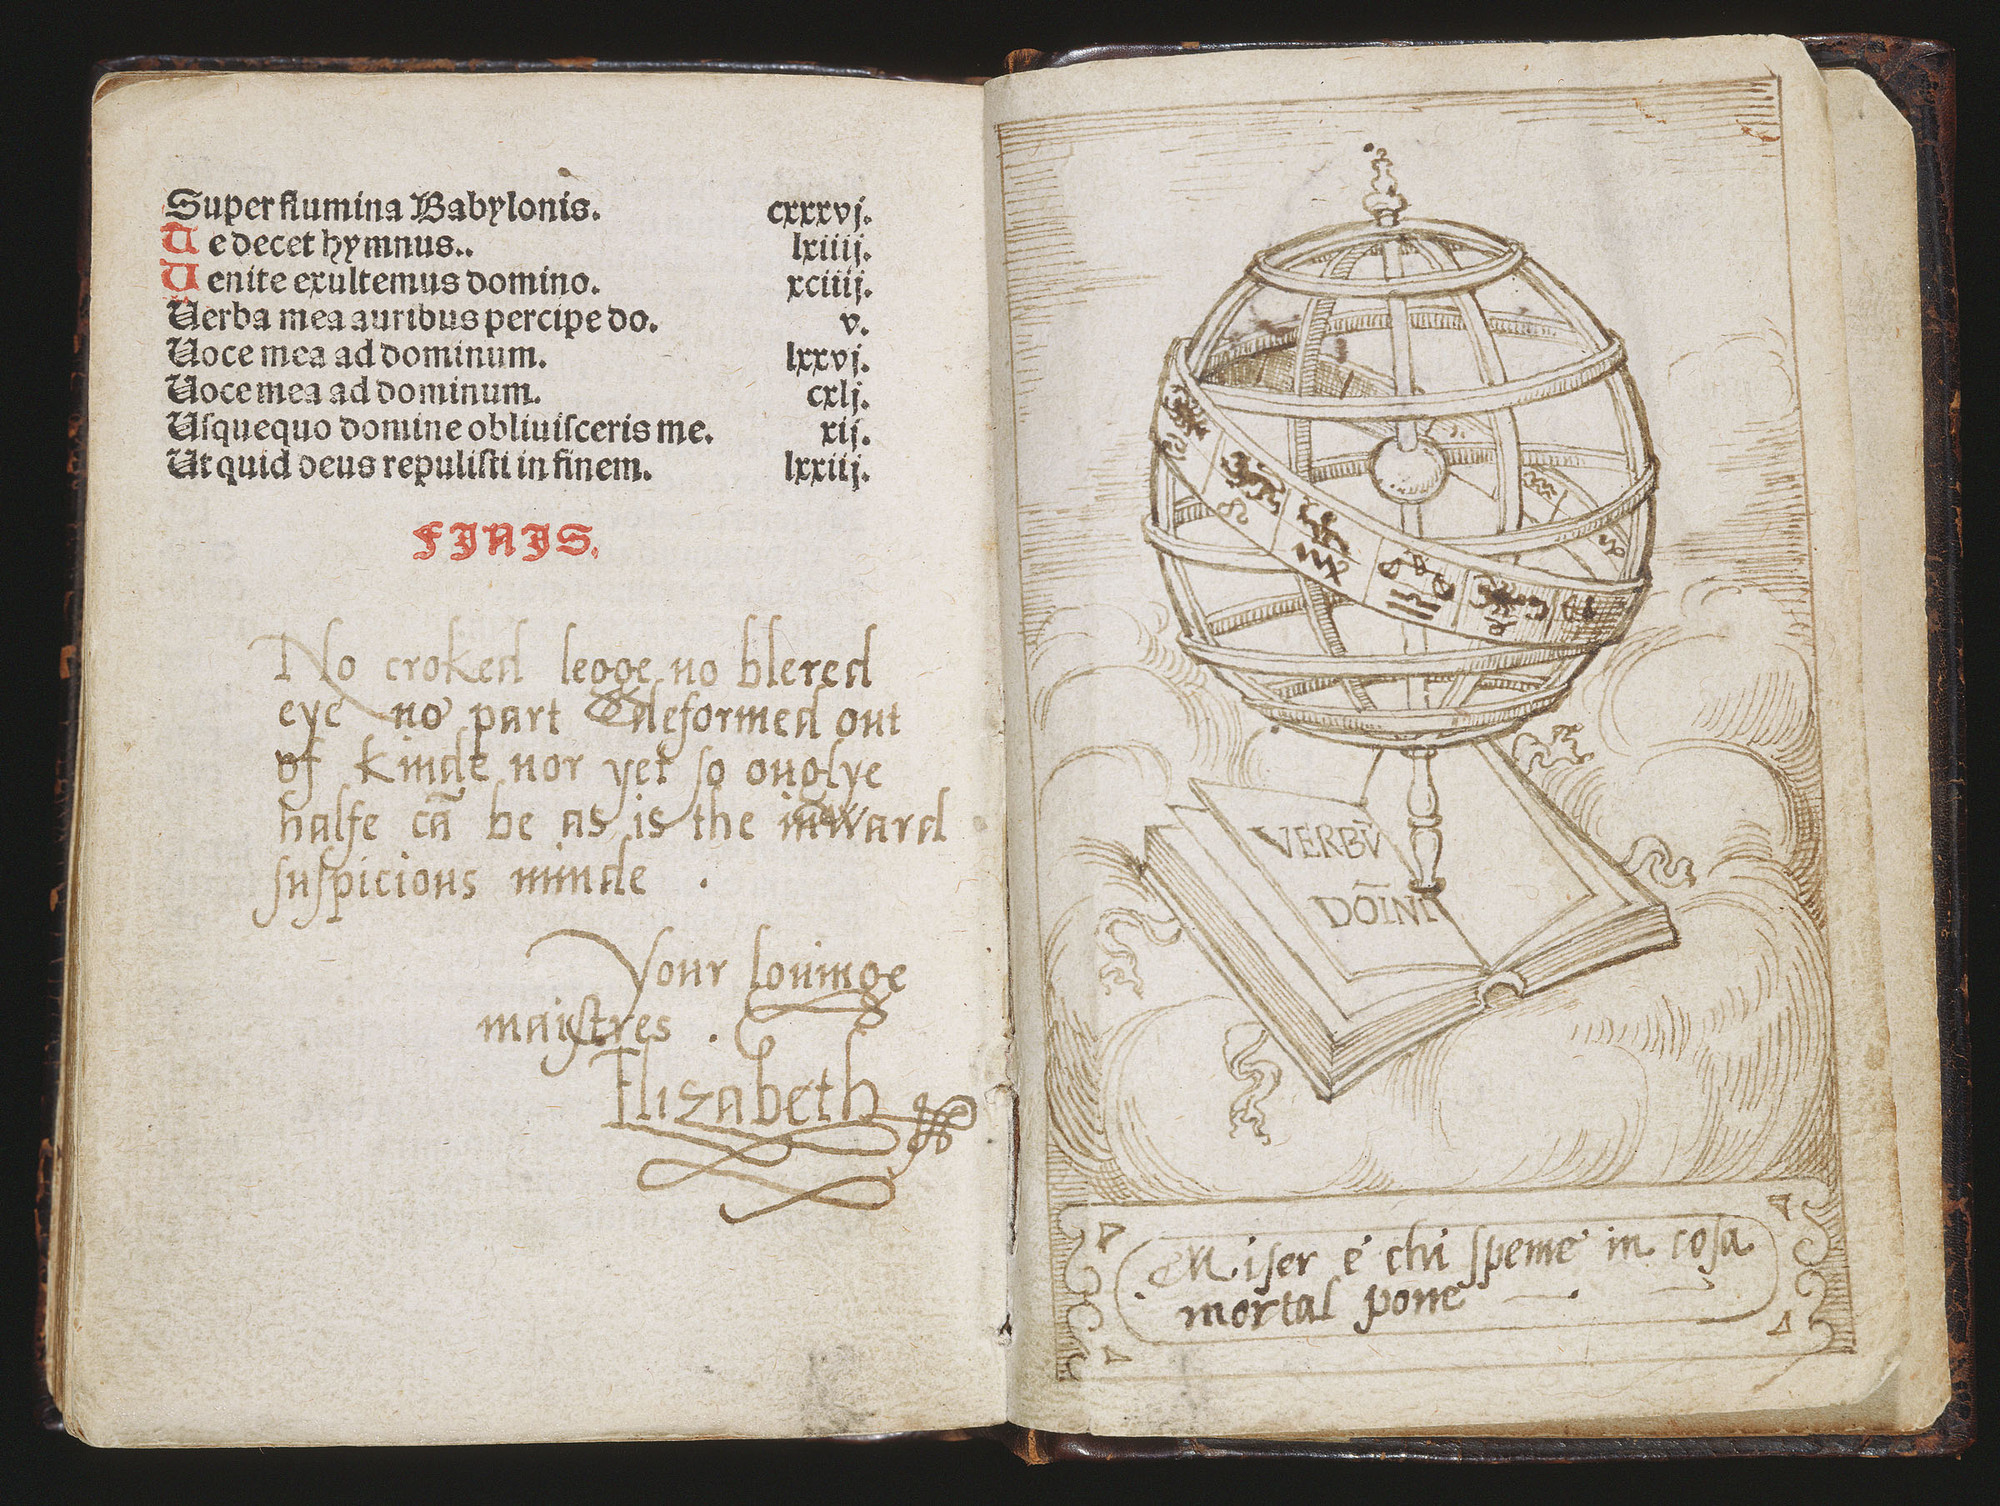 Super flumina Babylonis. cxxxvj.
Te decet hymnus.. lxiiij.
Uenite exultemus domino. xciiij.
Uerba mea auribus percipe do. v.
Uoce mea ad dominum. lxxvj.
Uoce mea ad dominum. cxlj.
Uſquequo domine obliuiſceris me. xij.
Ut quid deus repuliſti in finem. lxxiij.
FINIS.
No croked legge no blered
eye no part deformed out
of kinde nor yet ſo ouglye
halfe cā be as is the inward
ſuſpicious minde .
Your louinge
maiſtres .
Elizabeth
VERBŪ
DOĪNI
Miſer è chi ſpeme in coſa
mortal pone